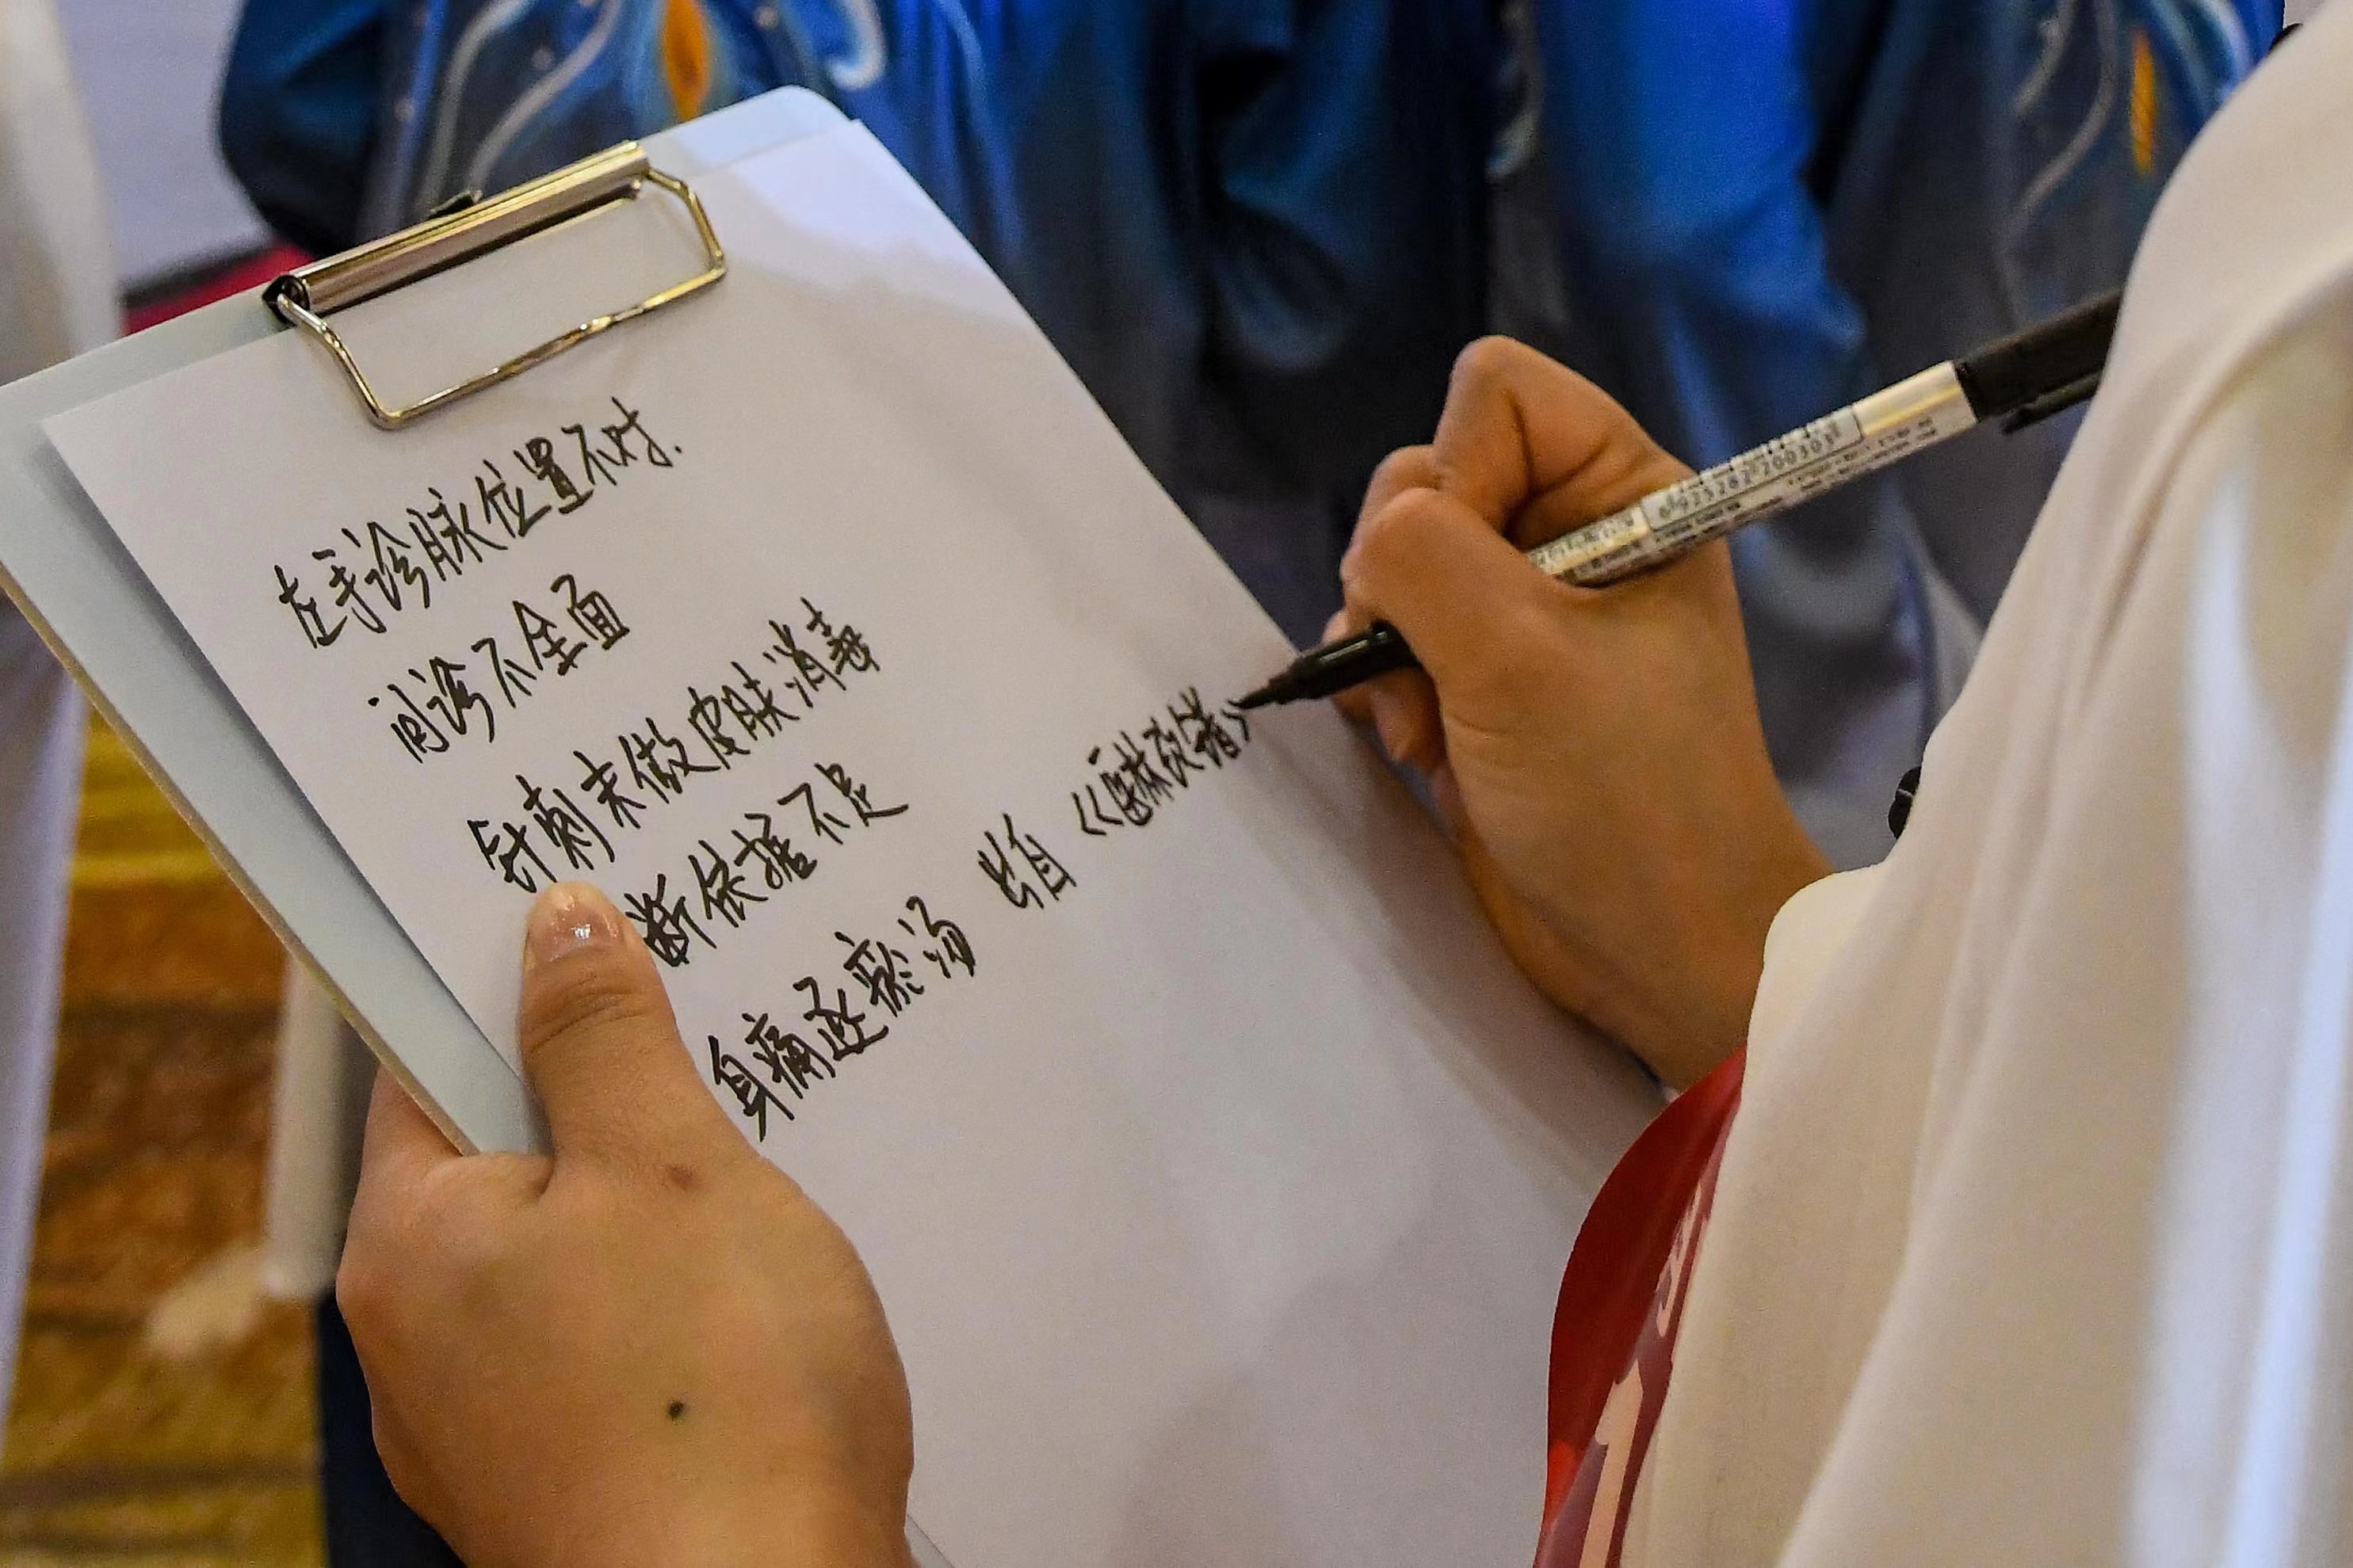 左手诊脉位置不对.
问诊不全面
针刺未做皮肤消毒
断依据不足
身痛逐瘀汤 出自《医林改错》